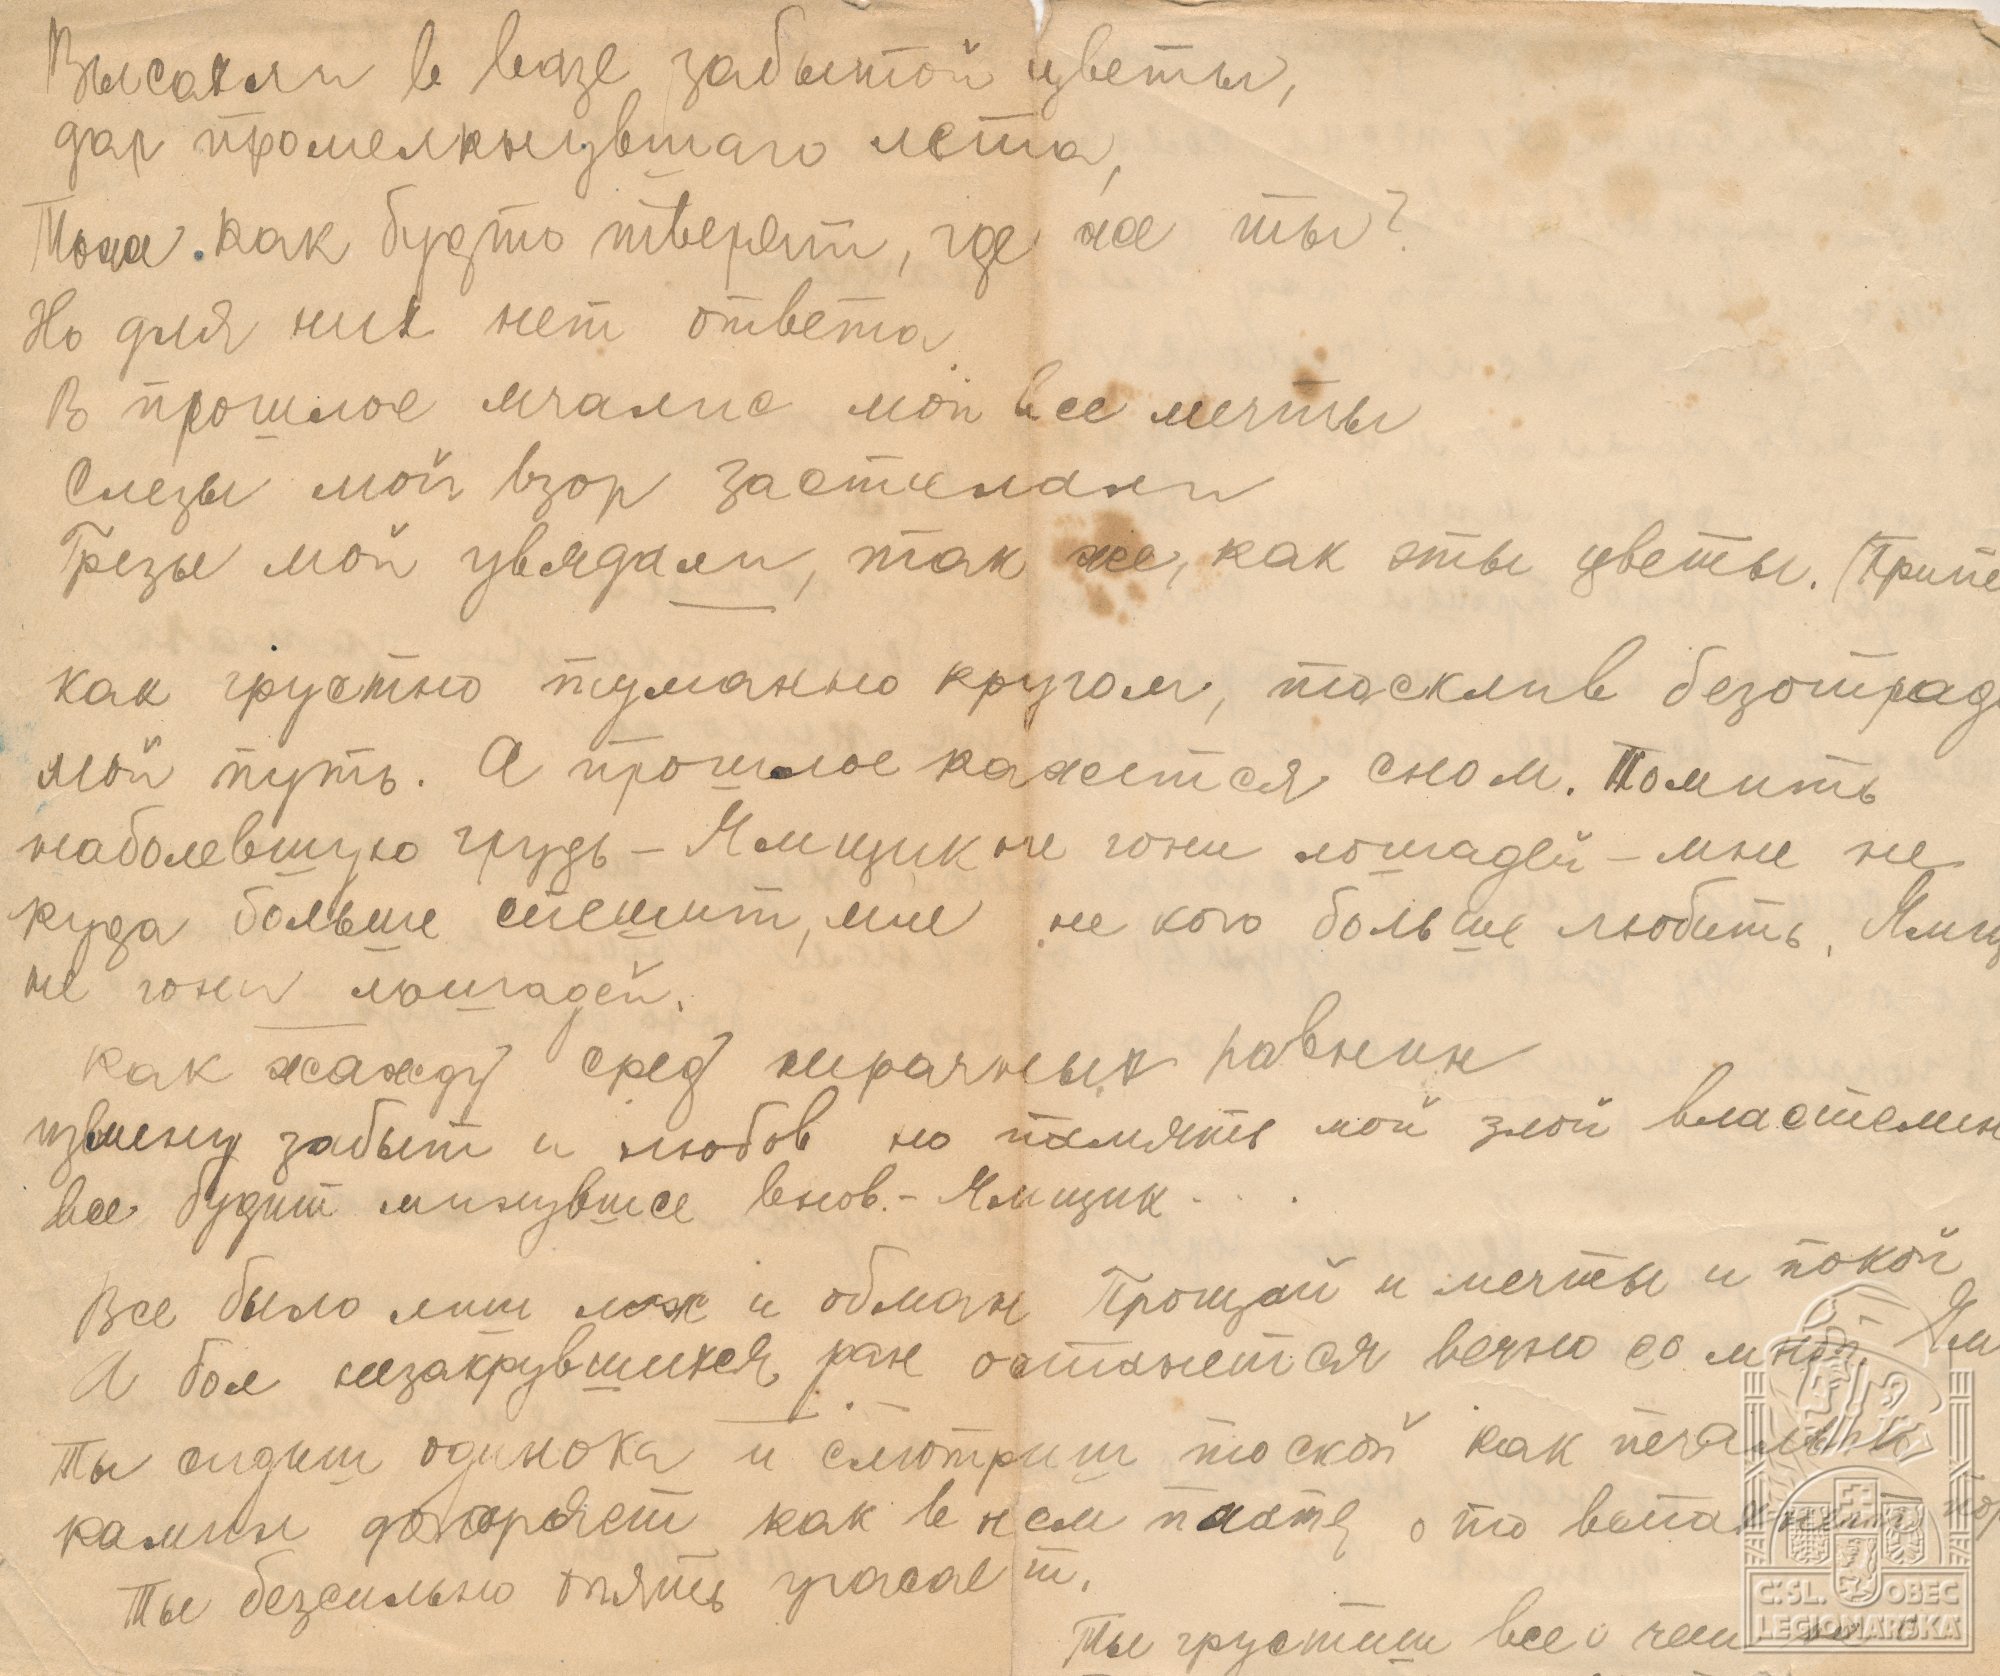 Высохли в вазе забытой цветы,
дар промелкнувшаго лета,
как будто твердят, где же ты?
Но для них нет ответа
В прошлое мчалис мои все мечты
Слезы мой взор застилали
Грезы мой увядали, так же, как эты цветы. (Припе
как грустно туманно кругом, тосклив безотрад
мой путь. А прошлое кажется сном. Томить
наболевшую грудь – Ямщик не гони лошадей – мне не
куда больше спешит, мне не кого больше любить, Ямщ
не гони лошадей.
как жажду сред мрачных равнин
измену забыт и любов но память мой злой властелин
все будит минувшее внов. – Ямщик . . .
Все было лиш лож и обман Прощай и мечты и покой
А бол незакрувшихся ран останется вечно со мной. Ям
Ты сидиш одинока и смотриш тоской как печально
камин догорает как в нем то вспахнет пор
Ты безсильно опять угасает.
Ты грустиш все о чем
C.SL. OBEC
LEGIONÁŘSKÁ